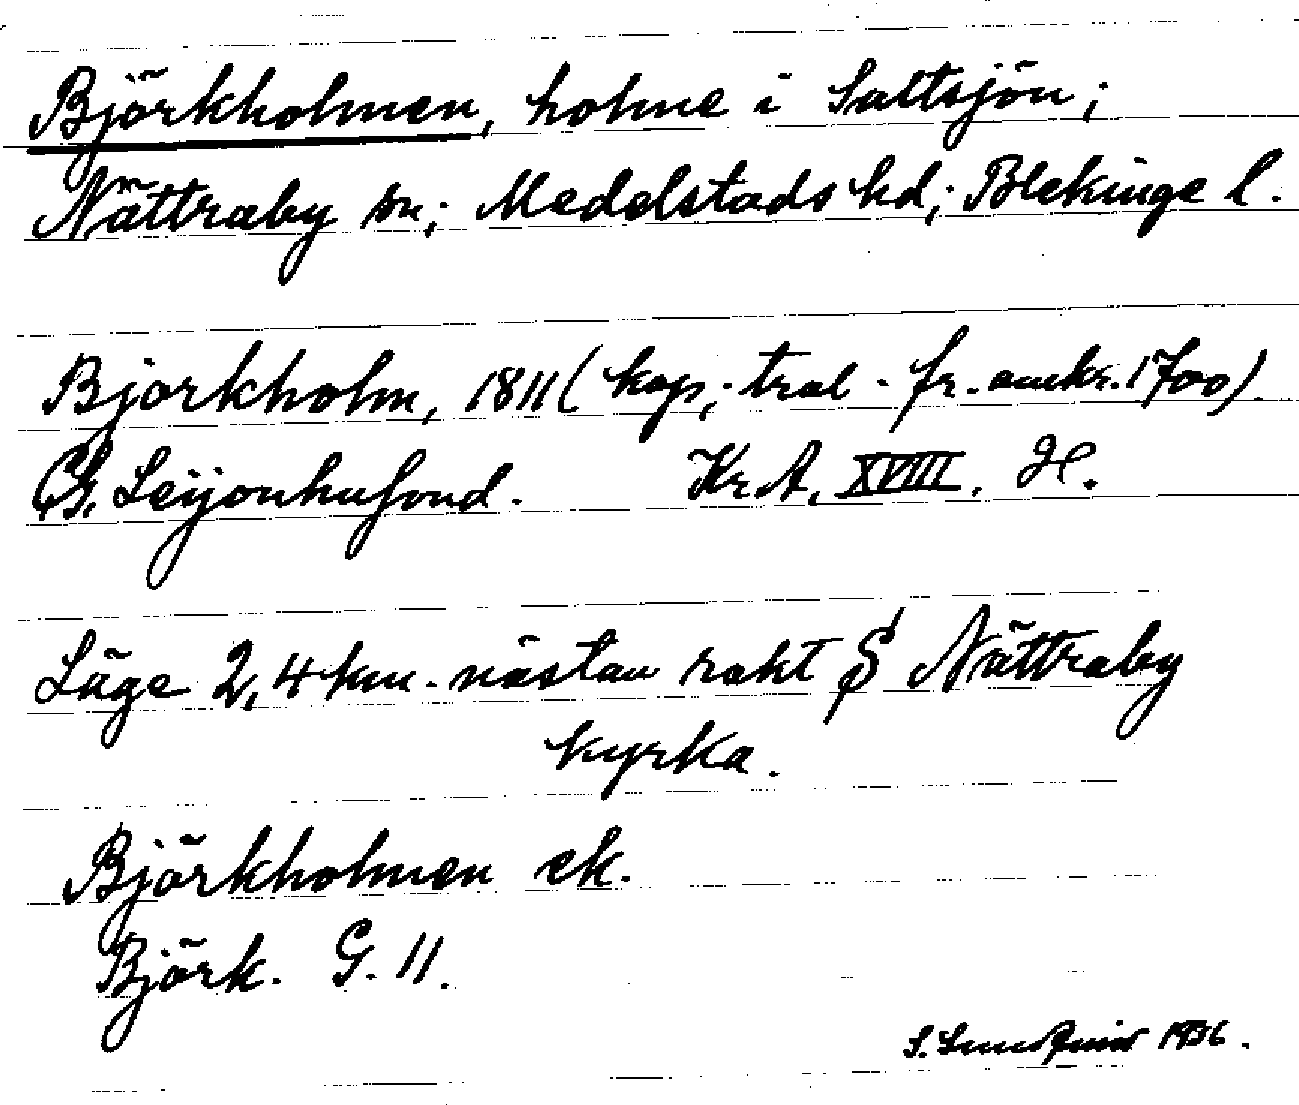 Björkholmen, holme i Saltsjön;
Nättraby sn; Medelstads hd; Blekinge l.
Bjorkholm, 1811 (kop; trol. fr. omkr. 1700).
G. Leijonhufvud. Kr. A. XVIII. H.
Läge 2,4 km. nästan rakt S Nättraby
kyrka.
Björkholmen ek.
Björk. G. 11.
S. Lundquist 1936.